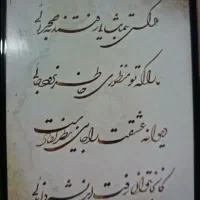 هر کسی به تماشایی رفتند به صحرایی
ما را که تو منظوری خاطر نرود جایی
دیوانه عشقت را جایی نظر افتادست
کانجا نتواند رفت اندیشه دانایی